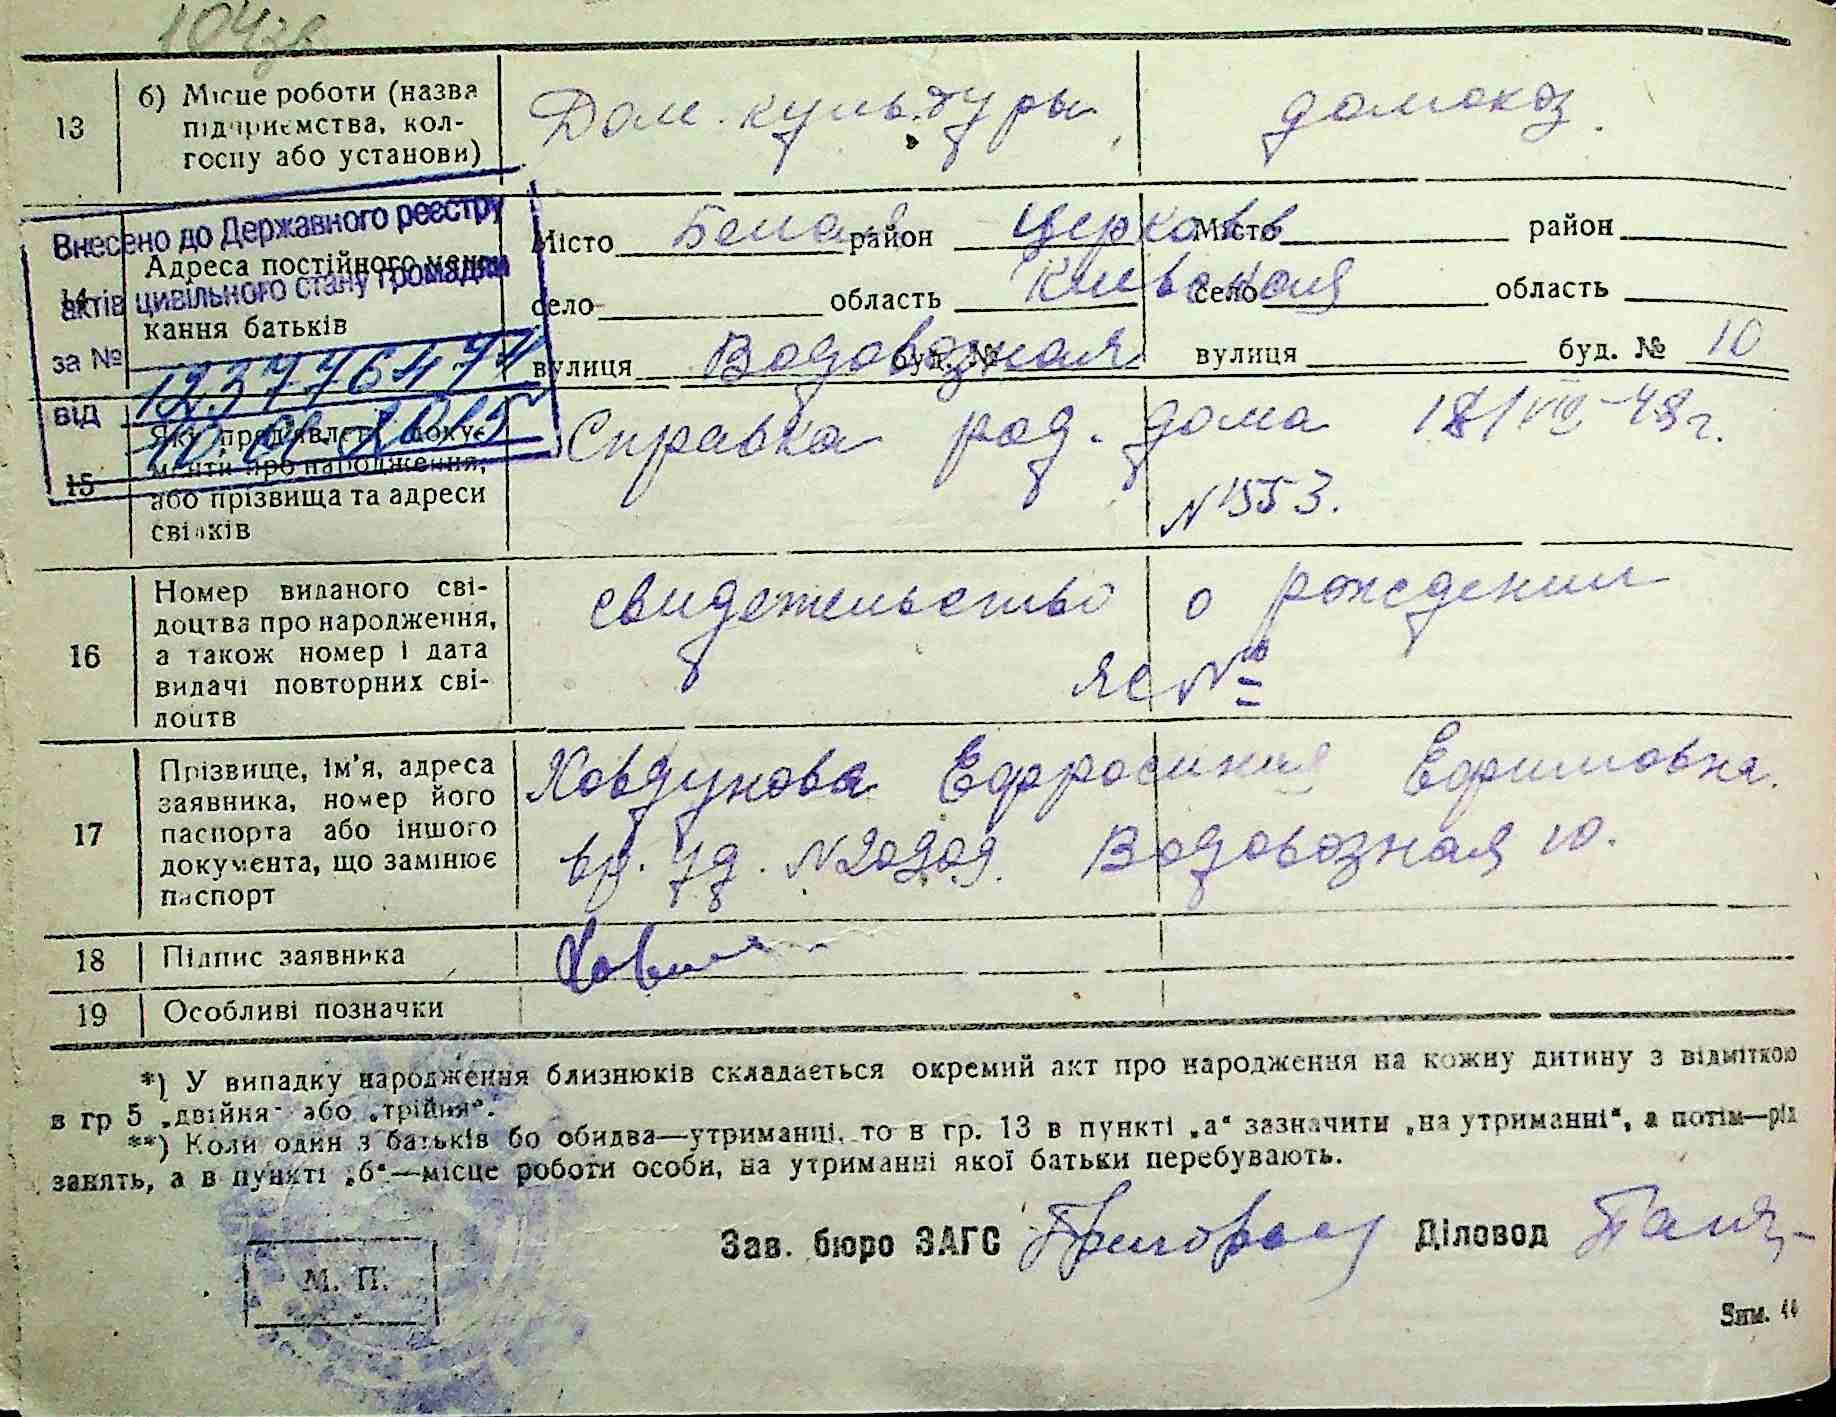 104зв
13
б) Місце роботи (назва
підприємства, кол-
госпу або установи)
Дом. культуры
домохоз.
Внесено до Державного реєстру
актів цивільного стану громадян
за № 12377647
від 10-01-2015
14
Адреса постійного меш-
кання батьків
Місто Белая район Церковь
село область Киевская
вулиця Водовозная буд. №
Місто район
село область
вулиця буд. № 10
15
Які пред'явлені доку-
менти про народження,
або прізвища та адреси
свідків
Справка род. дома 18/VIII-48г.
№1553.
16
Номер виданого сві-
доцтва про народження,
а також номер і дата
видачі повторних сві-
доцтв
свидетельство о рождении
ЯС №
17
Прізвище, ім'я, адреса
заявника, номер його
паспорта або іншого
документа, що замінює
паспорт
Ховдунова Ефросиния Ефимовна.
вр. уд. №20909. Водовозная 10.
18
Підпис заявника
19
Особливі позначки
*) У випадку народження близнюків складається окремий акт про народження на кожну дитину з відміткою
в гр 5 „двійня" або „трійня".
**) Коли один з батьків бо обидва—утриманці, то в гр. 13 в пункті „а" зазначити „на утриманні", а потім—рід
занять, а в пункті „б"—місце роботи особи, на утриманні якої батьки перебувають.
Зав. бюро ЗАГС
Діловод
М. П.
Зим. 44